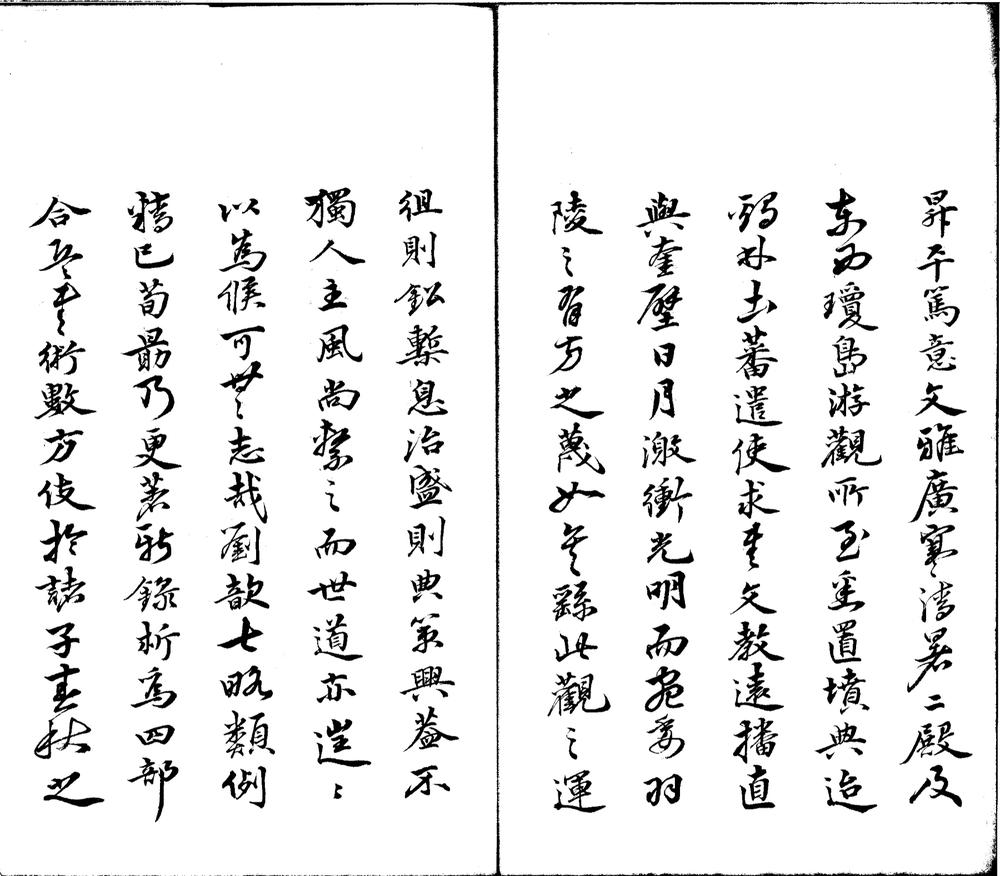 昇平篤意文雅廣寒清暑二殿及
東西瓊島游觀所至悉置墳典迨
土蕃遣使求書文教遠播直
與奎壁日月激衝光明而宛委羽
陵之有方之蔑如矣繇此觀之運
徂則鉛槧息治盛則典策興蓋不
獨人主風尚繫之而世道亦往〻
以為候可無志哉劉歆七略類例
精已荀勗乃更著新錄析為四部
合兵書術數方伎於諸子春秋之